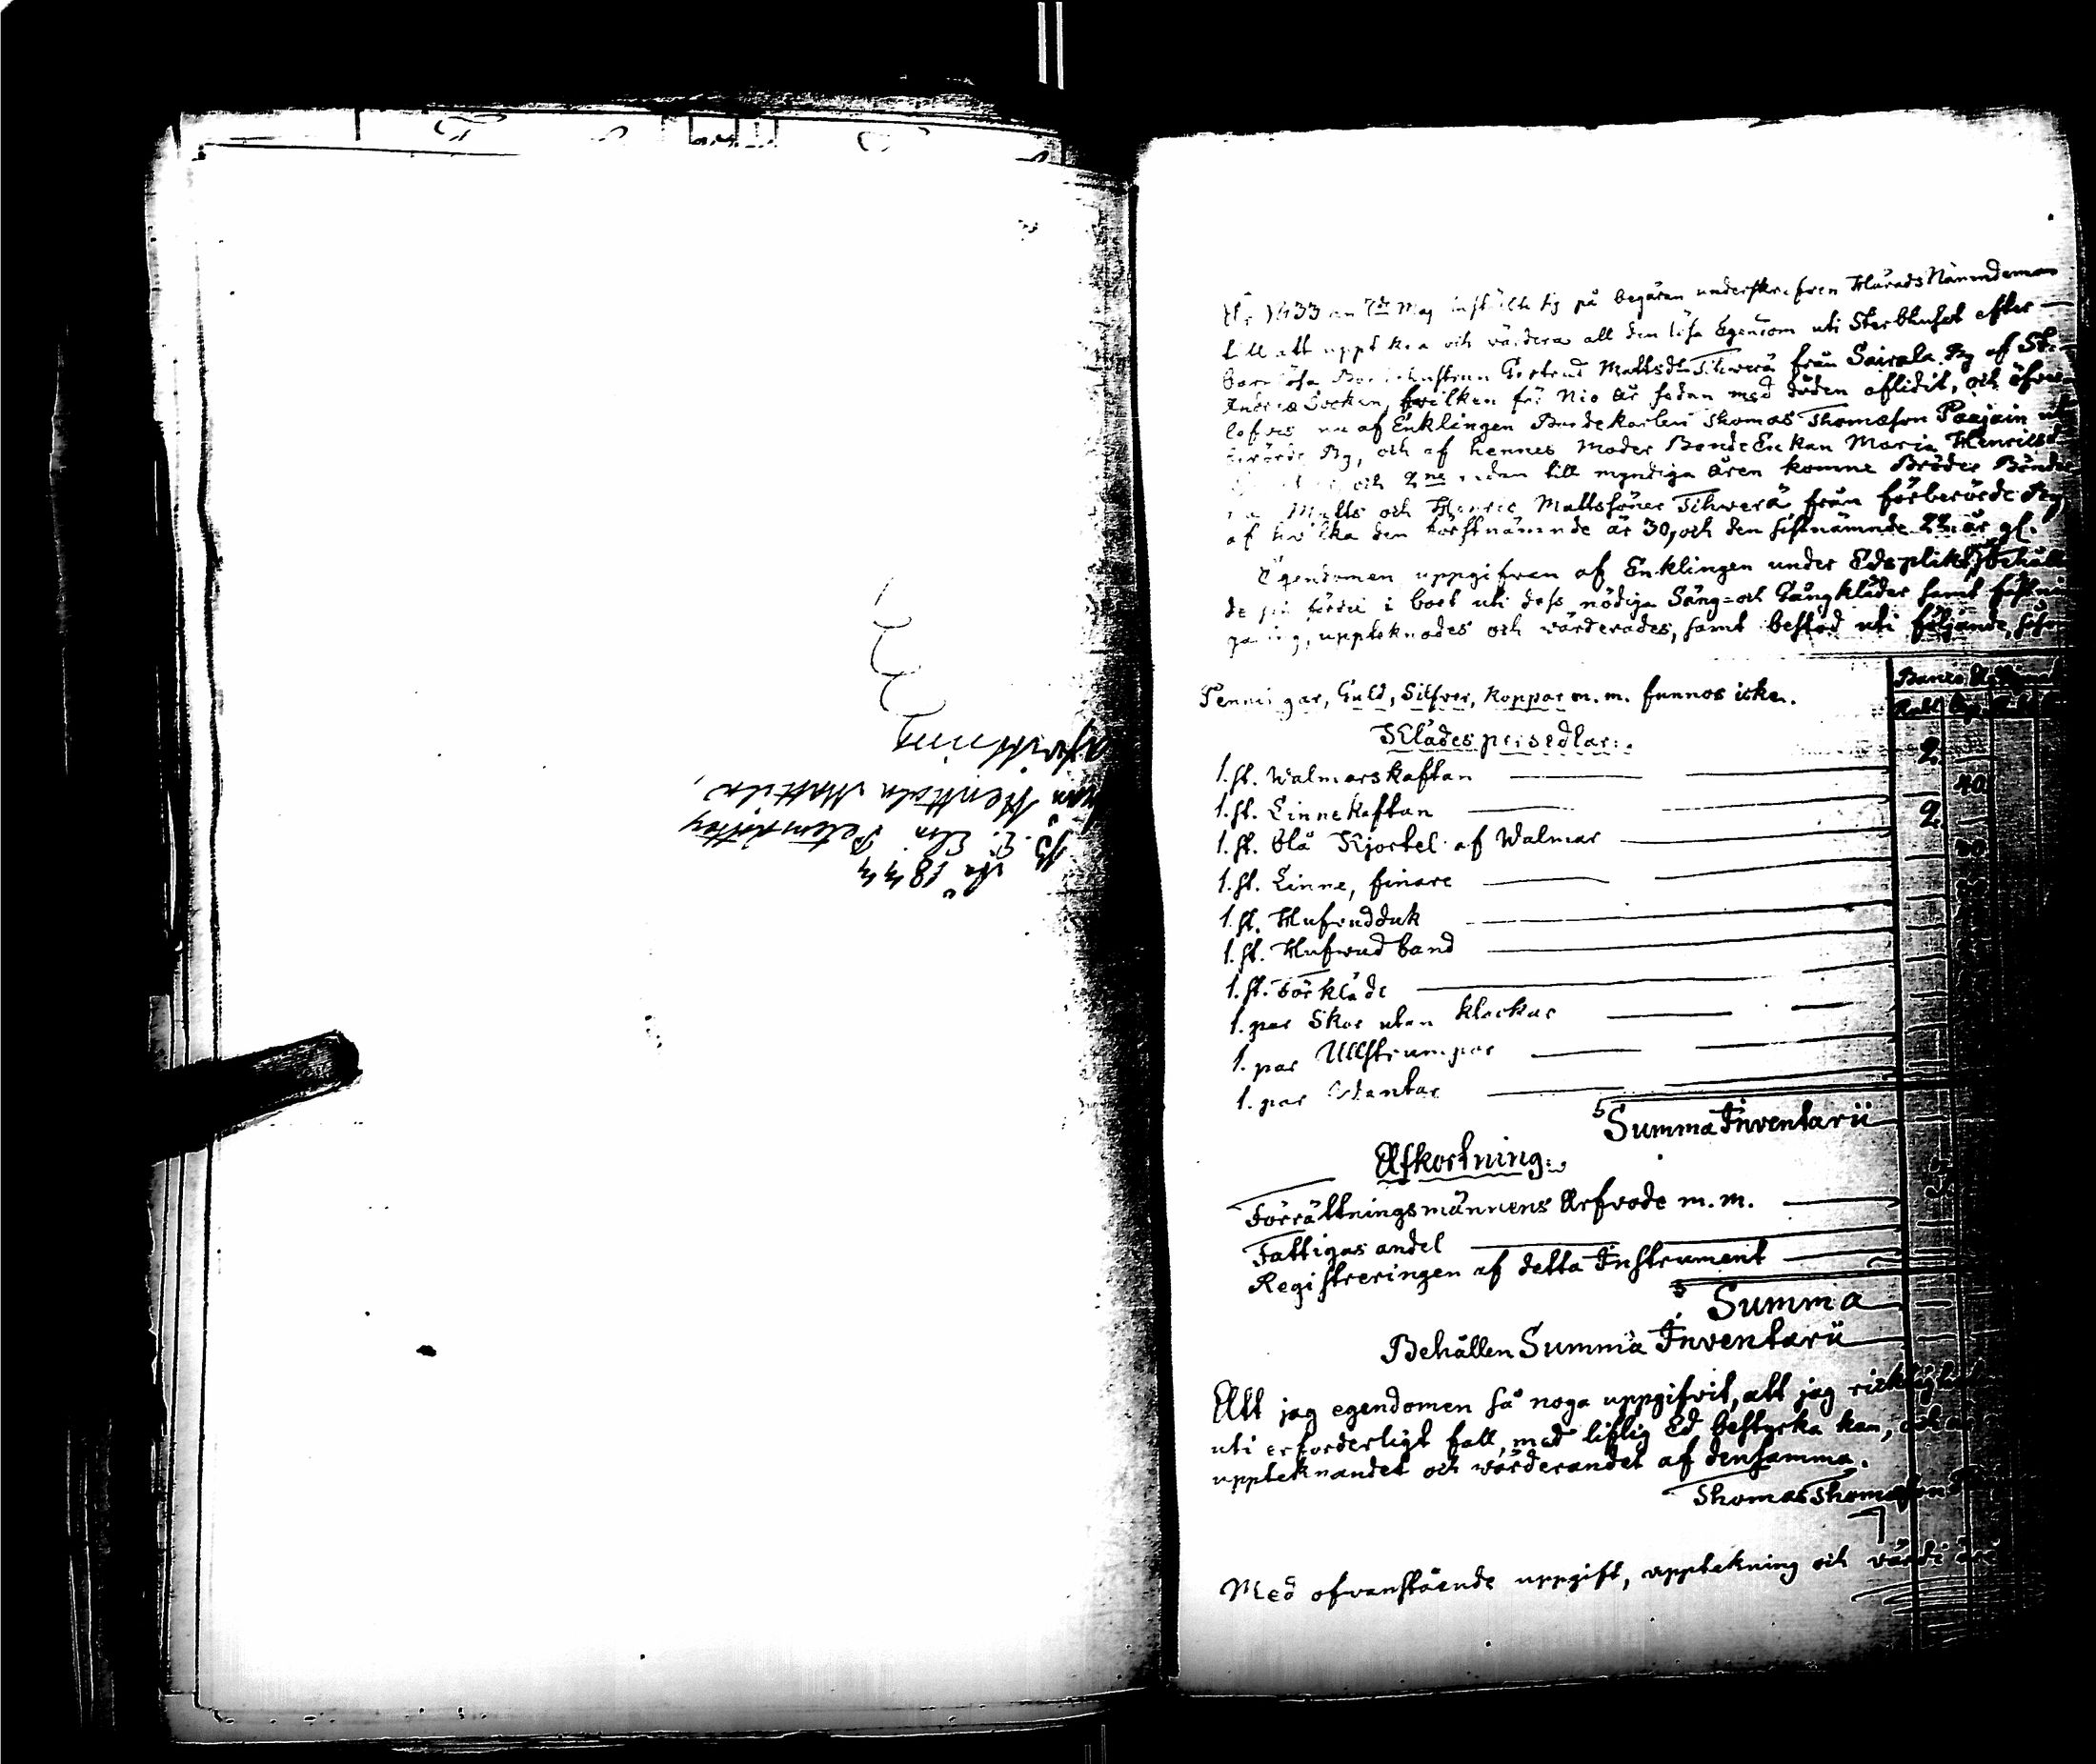 B. E. Elsa Petersdotter
från Henttala Mattila,
År 1833 den 7de Maj instälte sig på begäran underskrefven HäradsNämndeman
till att upptekna och värdera all den lösa Egendom uti Sterbhuset efter
barnlösa Bondehustrun Gertrud Mattsdr Tihverä från Sairala By af St.
Andreæ Socken, hvilken för Nio år sedan med döden aflidit, och öfver
lefves nu af Enklingen Bondekarlen Thomas Thomasson Paajain
berörde By, och af hennes Moder BondeEnkan Maria Henricsdr
och 2ne redan till myndiga åren komne Bröder Bönder
na Matts och Henric Mattssöner Tihverä från förberörde By
af hvilka den förstnämnde är 30, och den sistnämnde år gl.
Egendomen uppgifven af Enklingen under Edsplikt,
de på förde i boet uti dess nödiga Säng- och Gångkläder samt
uppteknades och värderades, samt bestod uti följande,
Penningar, Guld, Silfver, Koppar m. m. funnos icke.
Klädespersedlar:
1. st. Walmarskaftan 2
1. st. Linnekaftan 40
1. st. blå Kjortel af Walmar 2
1. st. Linne, finare
1. st. Hufvudduk
1. st. Hufvudband
1. st. Förkläde
1. par Skor utan klackar
1. par Ullstrumpor
1. par Vantar
Summa Inventarii
Afkortning:
Förrättningsmännens Arfvode m. m.
Fattigas andel
Registreringen af detta Instrument
Summa
Behållen Summa Inventarii
Att jag egendomen så noga uppgifvit, att jag
uti erforderligt fall, med liflig Ed bestyrka kan,
uppteknandet och värderandet af densamma.
Thomas Thomasson
Med ofvanstående uppgift, upptekning och